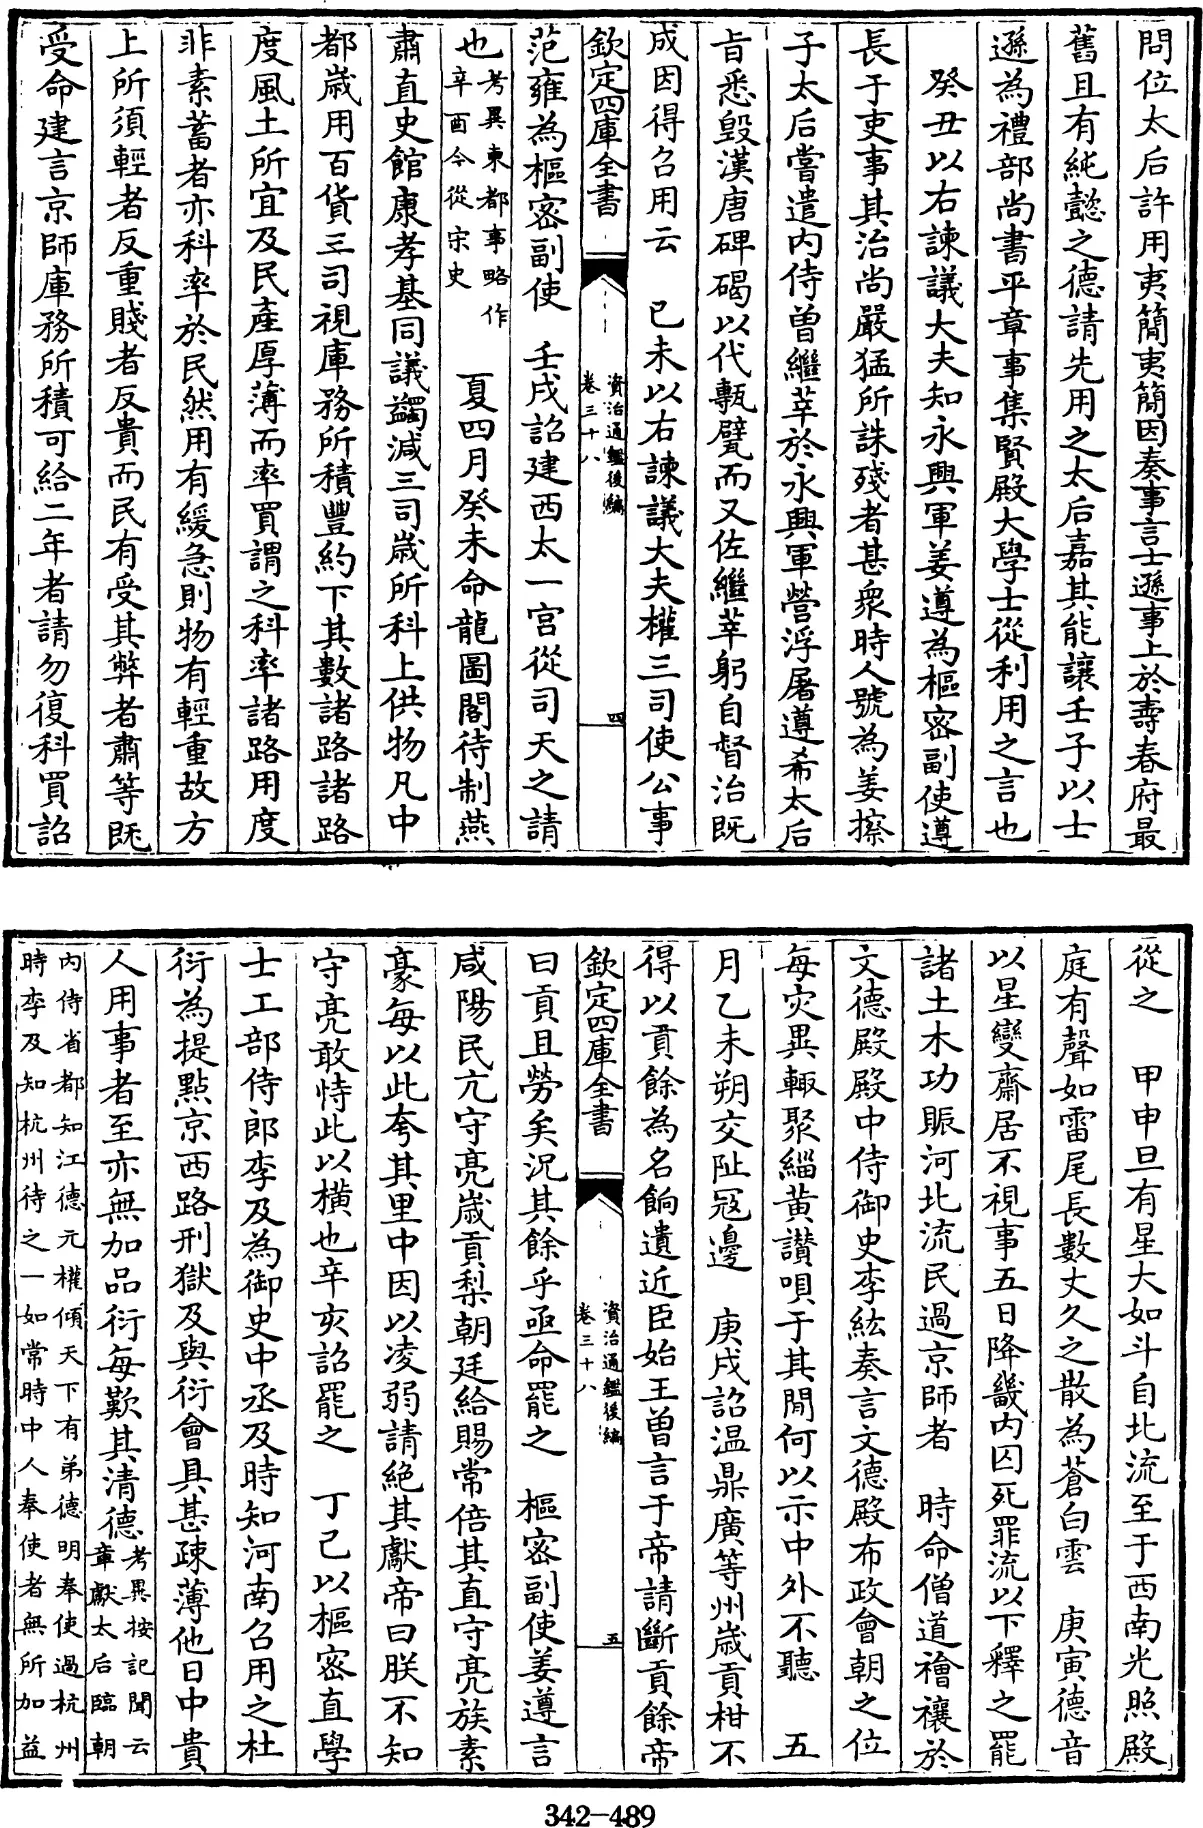 問位太后許用夷簡夷簡因奏事言士遜事上於壽春府最
舊且有純懿之德請先用之太后嘉其能讓壬子以士
遜為禮部尚書平章事集賢殿大學士從利用之言也
癸丑以右諫議大夫知永興軍姜遵為樞密副使遵
長于吏事其治尚嚴猛所誅殘者甚衆時人號為姜擦
子太后嘗遣内侍曾繼莘於永興軍營浮屠遵希太后
旨悉毁漢唐碑碣以代甎甓而又佐繼莘躬自督治既
成因得召用云　已未以右諫議大夫權三司使公事
欽定四庫全書
資治通鑑後編
卷三十八
四
范雍為樞密副使　壬戌詔建西太一宫從司天之請
也考異東都事略作
辛酉今從宋史　夏四月癸未命龍圖閣待制燕
肅直史館康孝基同議蠲減三司歲所科上供物凡中
都歲用百貨三司視庫務所積豐約下其數諸路諸路
度風土所宜及民產厚薄而率買謂之科率諸路用度
非素蓄者亦科率於民然用有緩急則物有輕重故方
上所須輕者反重賤者反貴而民有受其弊者肅等既
受命建言京師庫務所積可給二年者請勿復科買詔
從之　甲申旦有星大如斗自北流至于西南光照殿
庭有聲如雷尾長數丈久之散為蒼白雲　庚寅德音
以星變齋居不視事五日降畿内囚死罪流以下釋之罷
諸土木功賑河北流民過京師者　時命僧道禬禳於
文德殿殿中侍御史李紘奏言文德殿布政會朝之位
每灾異輙聚緇黄讃唄于其間何以示中外不聽　五
月乙未朔交阯冦邊　庚戌詔温鼎廣等州歲貢柑不
得以貢餘為名餉遺近臣始王曾言于帝請斷貢餘帝
欽定四庫全書
資治通鑑後編
卷三十八
五
曰貢且勞矣況其餘乎亟命罷之　樞密副使姜遵言
咸陽民亢守亮歲貢梨朝廷給賜常倍其直守亮族素
豪每以此夸其里中因以凌弱請絶其獻帝曰朕不知
守亮敢恃此以横也辛亥詔罷之　丁己以樞密直學
士工部侍郎李及為御史中丞及時知河南召用之杜
衍為提點京西路刑獄及與衍會具甚疎薄他日中貴
人用事者至亦無加品衍每歎其清德考異按記聞云
章獻太后臨朝
内侍省都知江德元權傾天下有弟德明奉使過杭州
時李及知杭州待之一如常時中人奉使者無所加益
342-489